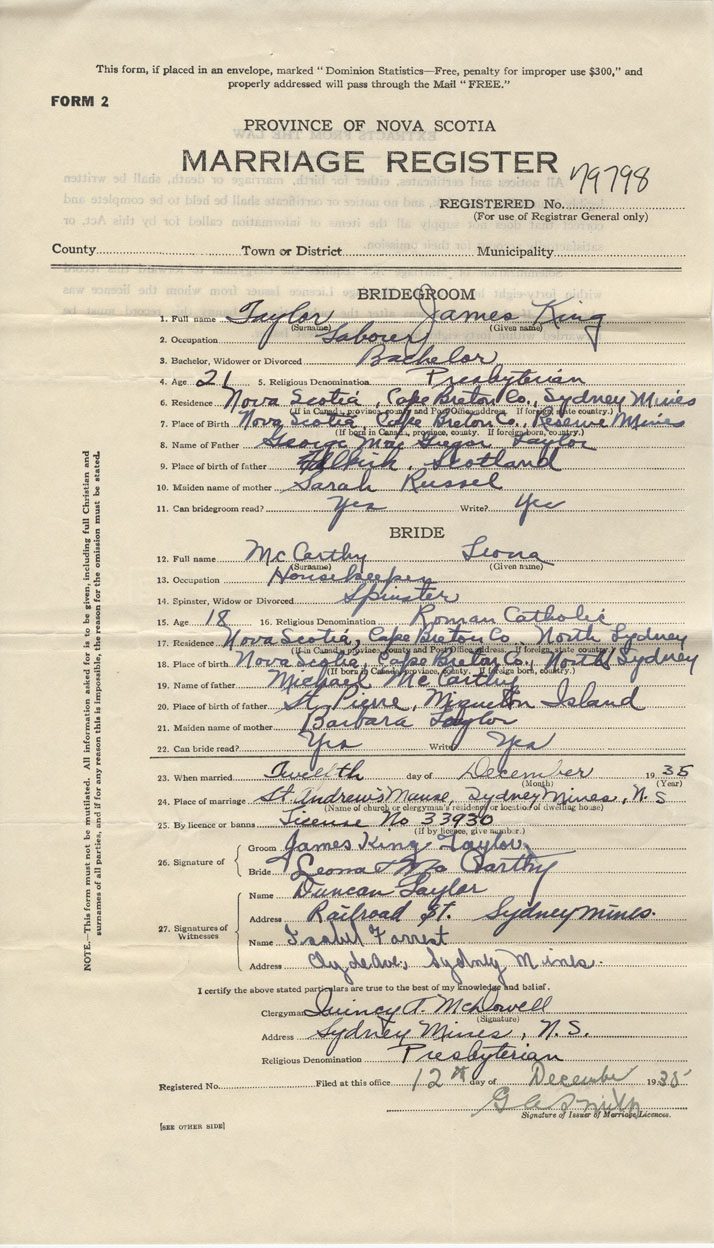 This form, if placed in an envelope, marked "Dominion Statistics—Free, penalty for improper use $300," and
properly addressed will pass through the Mail "FREE."
FORM 2
PROVINCE OF NOVA SCOTIA
MARRIAGE REGISTER
79798
REGISTERED No.
(For use of Registrar General only)
County Town or District Municipality
BRIDEGROOM
1. Full name Taylor James King
(Surname) (Given name)
2. Occupation Labourer
3. Bachelor, Widower or Divorced Bachelor
4. Age 21 5. Religious Denomination Presbyterian
6. Residence Nova Scotia, Cape Breton Co., Sydney Mines
(If in Canada, province, county and Post Office address. If foreign, state country.)
7. Place of Birth Nova Scotia, Cape Breton Co., Reserve Mines
(If born in Canada, province, county. If foreign born, country.)
8. Name of Father George Mac Gregor Taylor
9. Place of birth of father Scotland
10. Maiden name of mother Sarah Russel
11. Can bridegroom read? Yes Write? Yes
BRIDE
12. Full name McCarthy Leona
(Surname) (Given name)
13. Occupation Housekeeper
14. Spinster, Widow or Divorced Spinster
15. Age 18 16. Religious Denomination Roman Catholic
17. Residence Nova Scotia, Cape Breton Co., North Sydney
(If in Canada, province, county and Post Office address. If foreign, state country.)
18. Place of birth Nova Scotia, Cape Breton Co., North Sydney
(If born in Canada, province, county. If foreign born, country.)
19. Name of father Michael McCarthy
20. Place of birth of father St. Pierre, Miquelon Island
21. Maiden name of mother Barbara Taylor
22. Can bride read? Yes Write? Yes
23. When married Twelfth day of December 1935
(Month) (Year)
24. Place of marriage St. Andrew's Manse, Sydney Mines, N.S
(Name of church or clergyman's residence or location of dwelling house)
25. By licence or banns License No 33930
(If by licence, give number.)
26. Signature of
Groom James King Taylor
Bride Leona McCarthy
27. Signatures of Witnesses
Name Duncan Taylor
Address Railroad St. Sydney Mines.
Name Isabel Forrest
Address Clyde Ave., Sydney Mines.
I certify the above stated particulars are true to the best of my knowledge and belief.
Clergyman Quincy A. McDowell
(Signature)
Address Sydney Mines, N.S.
Religious Denomination Presbyterian
Registered No. Filed at this office 12th day of December 1935
G A Smith
Signature of Issuer of Marriage Licences.
[SEE OTHER SIDE]
NOTE.—This form must not be mutilated. All information asked for is to be given, including full Christian and
surnames of all parties, and if for any reason this is impossible, the reason for the omission must be stated.